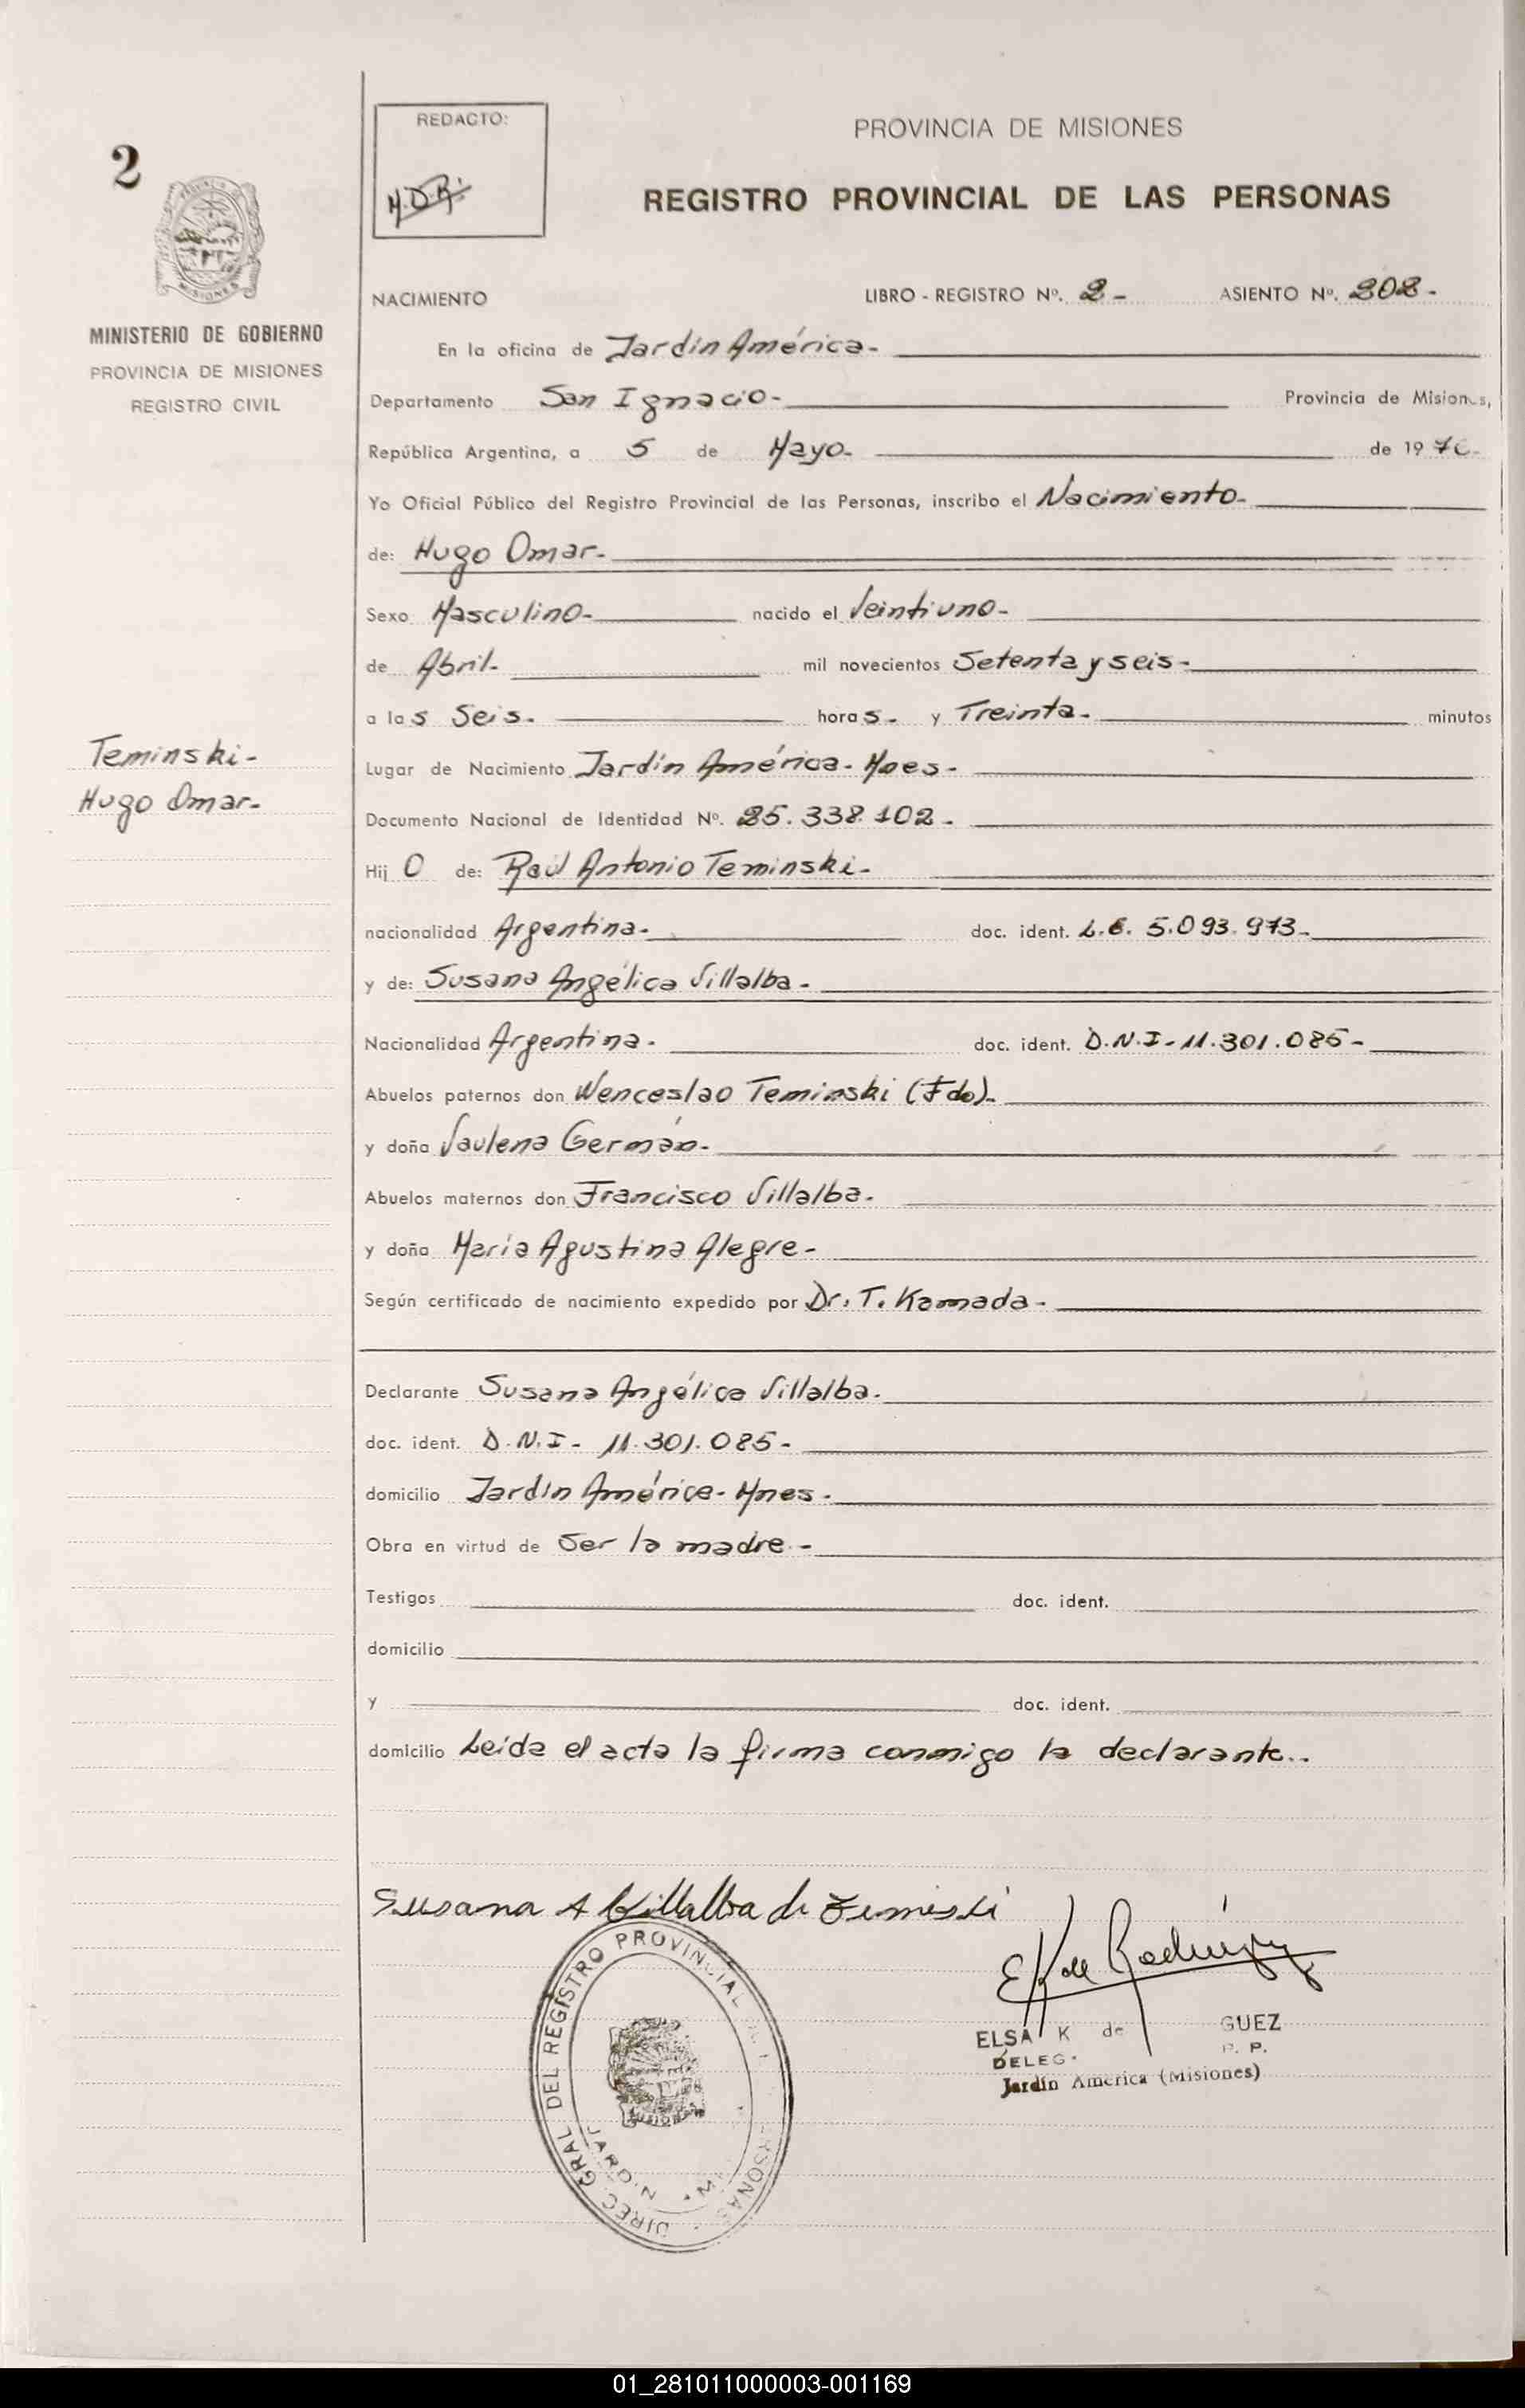 2
REDACTO:
PROVINCIA DE MISIONES
REGISTRO PROVINCIAL DE LAS PERSONAS
MISIONES
MINISTERIO DE GOBIERNO
PROVINCIA DE MISIONES
REGISTRO CIVIL
NACIMIENTO LIBRO - REGISTRO Nº. 2 - ASIENTO Nº. 202 -
En la oficina de Jardín América -
Departamento San Ignacio - Provincia de Misiones,
República Argentina, a 5 de Mayo - de 1976 -
Yo Oficial Público del Registro Provincial de las Personas, inscribo el Nacimiento -
de: Hugo Omar -
Sexo Masculino - nacido el Veintiuno -
de Abril - mil novecientos Setenta y seis -
a las Seis. horas. y Treinta - minutos
Teminski -
Hugo Omar -
Lugar de Nacimiento Jardín América - Mnes -
Documento Nacional de Identidad Nº. 25.338.102 -
Hijo de: Raúl Antonio Teminski -
nacionalidad Argentina - doc. ident. L.E. 5.093.973 -
y de: Susana Angélica Villalba -
Nacionalidad Argentina - doc. ident. D.N.I - 11.301.085 -
Abuelos paternos don Wenceslao Teminski (Fdo) -
y doña Saulena Germán -
Abuelos maternos don Francisco Villalba -
y doña María Agustina Alegre -
Según certificado de nacimiento expedido por Dr. T. Kamada -
Declarante Susana Angélica Villalba -
doc. ident. D.N.I - 11.301.085 -
domicilio Jardín América - Mnes -
Obra en virtud de Ser la madre -
Testigos doc. ident.
domicilio
y doc. ident.
domicilio Leída el acta la firma conmigo la declarante..
Susana A Villalba de Temiski
E K de Rodríguez
ELSA K de GUEZ
DELEG. P. P.
Jardín América (Misiones)
DIREC. GRAL DEL REGISTRO PROVINCIAL PERSONAS
JARDIN
01_281011000003-001169